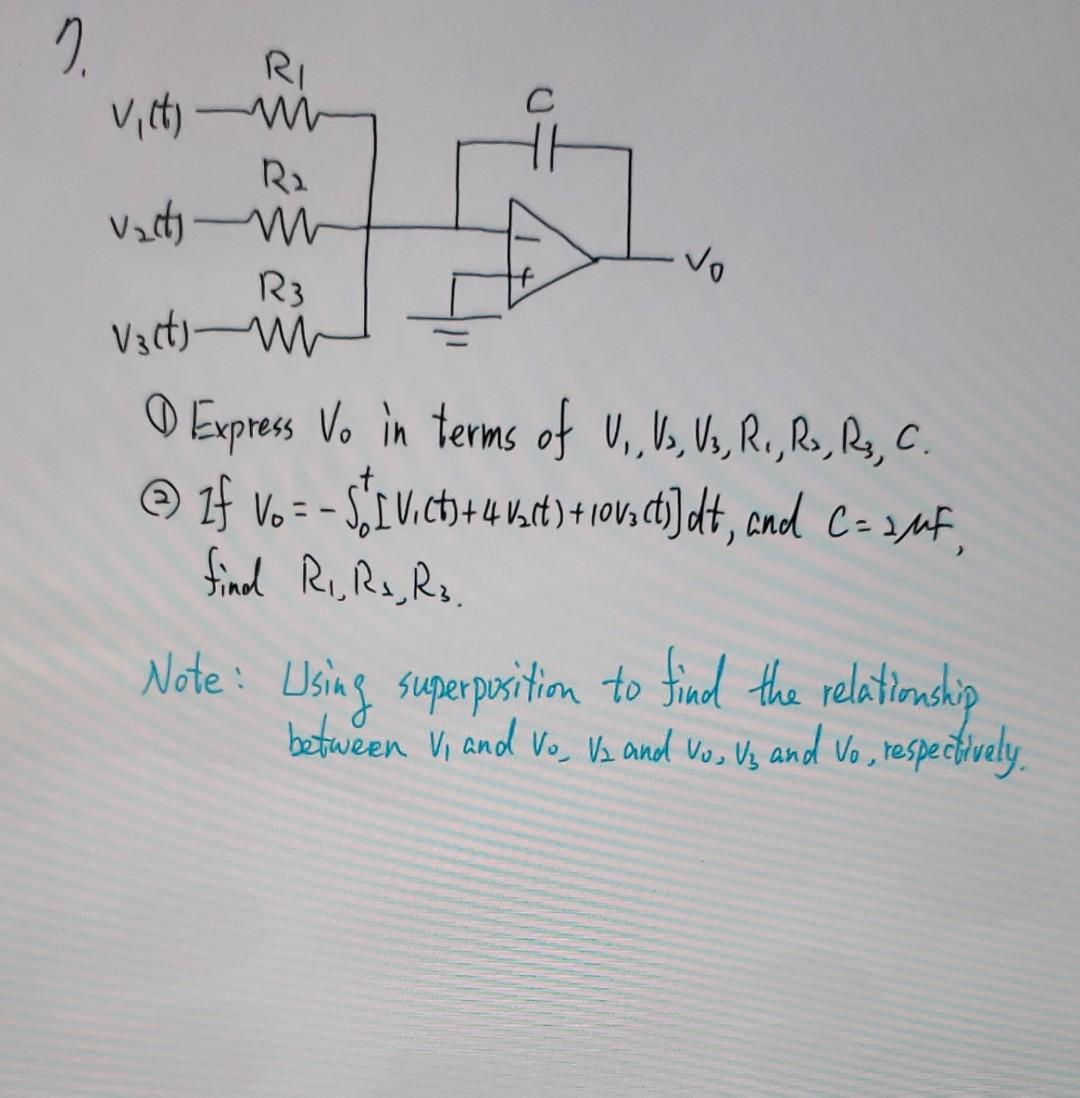 7.
R1
V₁(t)
C
R2
V2(t)
-
+
Vo
R3
V3(t)
① Express Vo in terms of V₁, V₂, V₃, R₁, R₂, R₃, C.
② If Vo = - ∫₀ᵗ [V₁(t)+4V₂(t)+10V₃(t)]dt, and C=2μF,
find R₁, R₂, R₃.
Note: Using superposition to find the relationship
between V₁ and Vo, V2 and Vo, V3 and Vo, respectively.